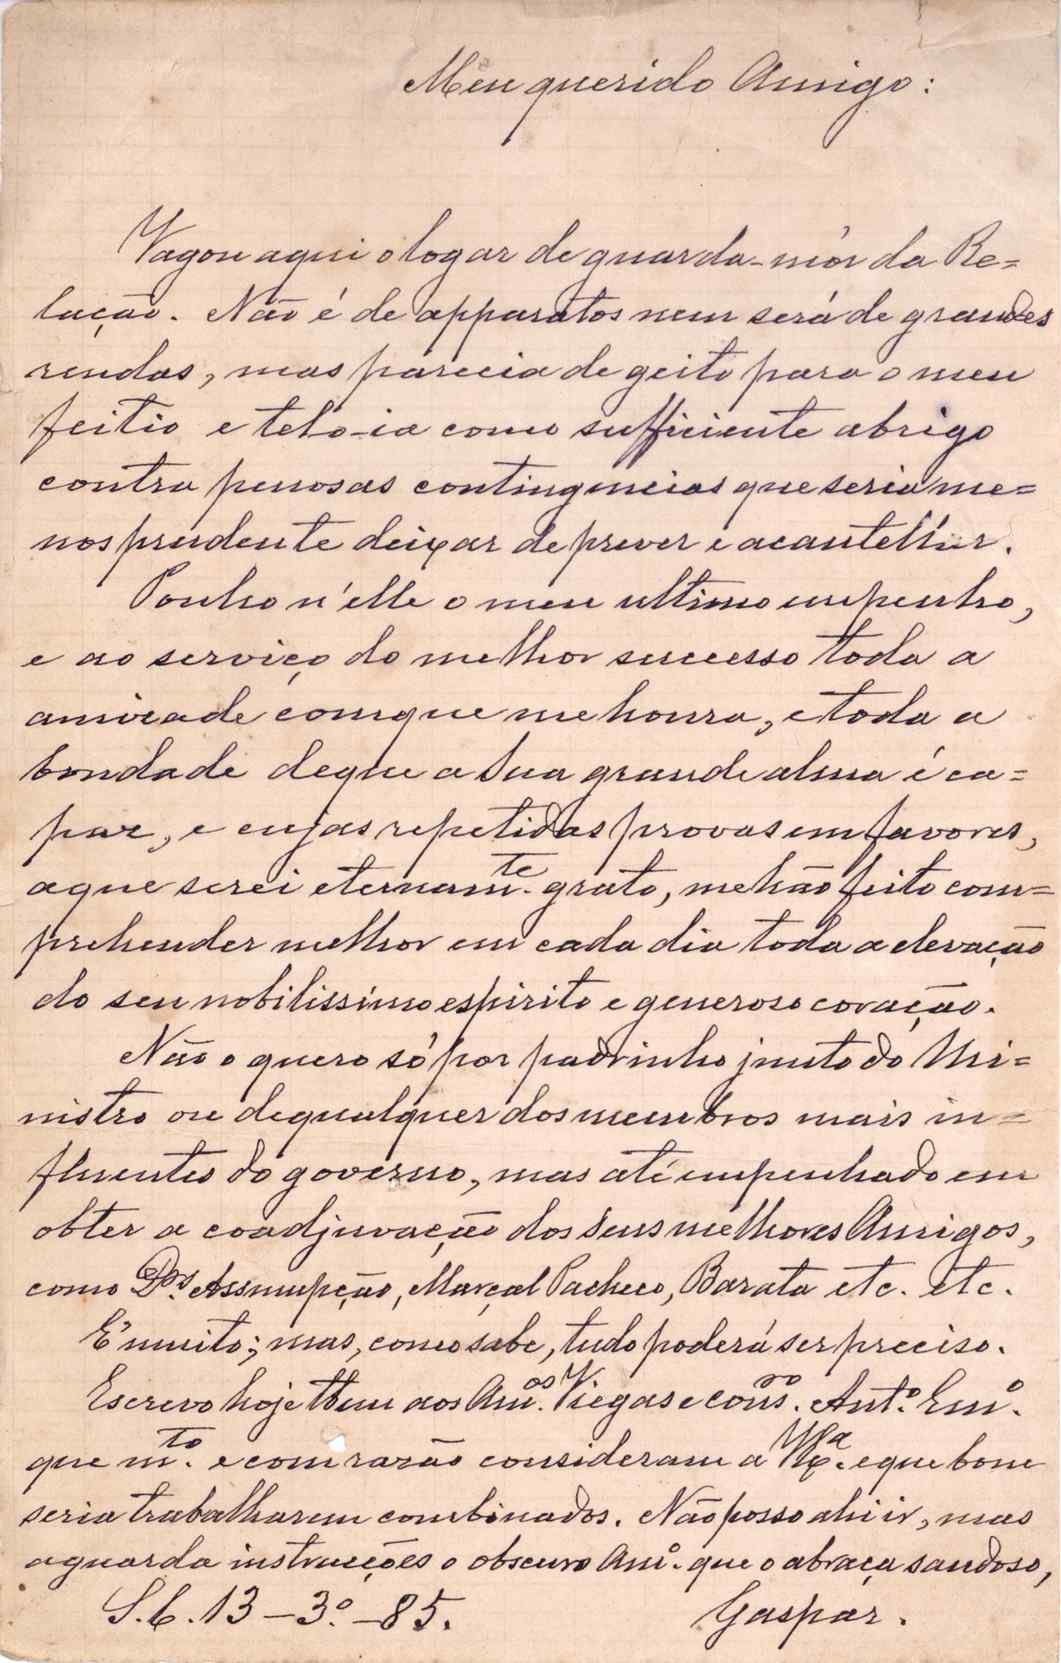 Meu querido Amigo:
Vagou aqui o logar de guarda-mór da Re=
lação. Não é de apparatos nem será de grandes
rendas, mas parecia de geito para o meu
feitio e tel-o-ia como sufficiente abrigo
contra penosas contingencias que seria me=
nos prudente deixar de prever e acautellar.
Ponho n'elle o meu ultimo empenho,
e ao serviço do melhor successo toda a
amizade com que me honra, e toda a
bondade de que a Sua grande alma é ca=
paz, e cujas repetidas provas em favores,
a que serei eternam.te grato, me hão feito com=
prehender melhor em cada dia toda a elevação
do seu nobilissimo espirito e generoso coração.
Não o quero só por padrinho junto do Mi=
nistro ou de qualquer dos membros mais in=
fluentes do governo, mas até empenhado em
obter a coadjuvação dos Seus melhores Amigos,
como Drs. Assumpção, Marçal Pacheco, Barata etc. etc.
E' muito; mas, como sabe, tudo poderá ser preciso.
Escrevo hoje tbem aos Am.os Viegas e cons.ro Ant.o Em.o
que m.to e com razão consideram a V. Ex.a e que bom
seria trabalharem combinados. Não posso ahi ir, mas
aguarda instrucções o obscuro Am.o que o abraça saudoso,
S.C. 13-3.o-85. Gaspar.